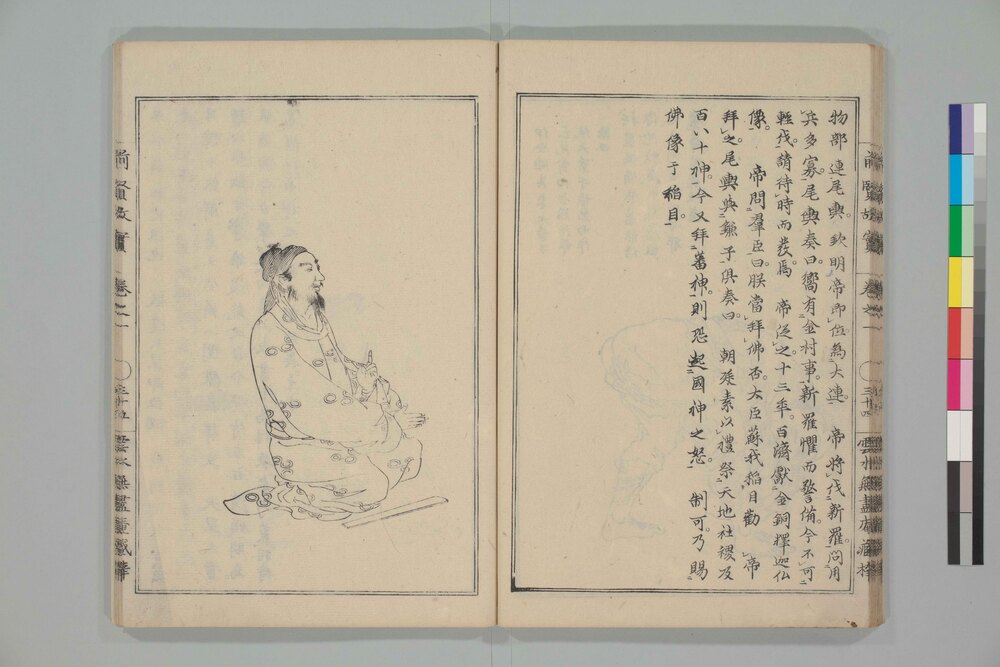 物部連尾輿。欽明帝即位為大連。帝將伐新羅。問用
兵多寡。尾輿奏曰。嚮有金村事。新羅懼而警備。今不可
輕伐。請待時而發焉。帝從之。十三年。百濟獻金銅釋迦仏
像。帝問羣臣曰。朕當拜佛否。大臣蘇我稻目勸帝
拜之。尾輿與鎌子俱奏曰。朝廷素以禮祭天地社稷及
百八十神。今又拜蕃神。則恐起國神之怒。制可。乃賜
佛像于稻目。
前賢故實 卷之一 三十四
前賢故實 卷之一 三十五